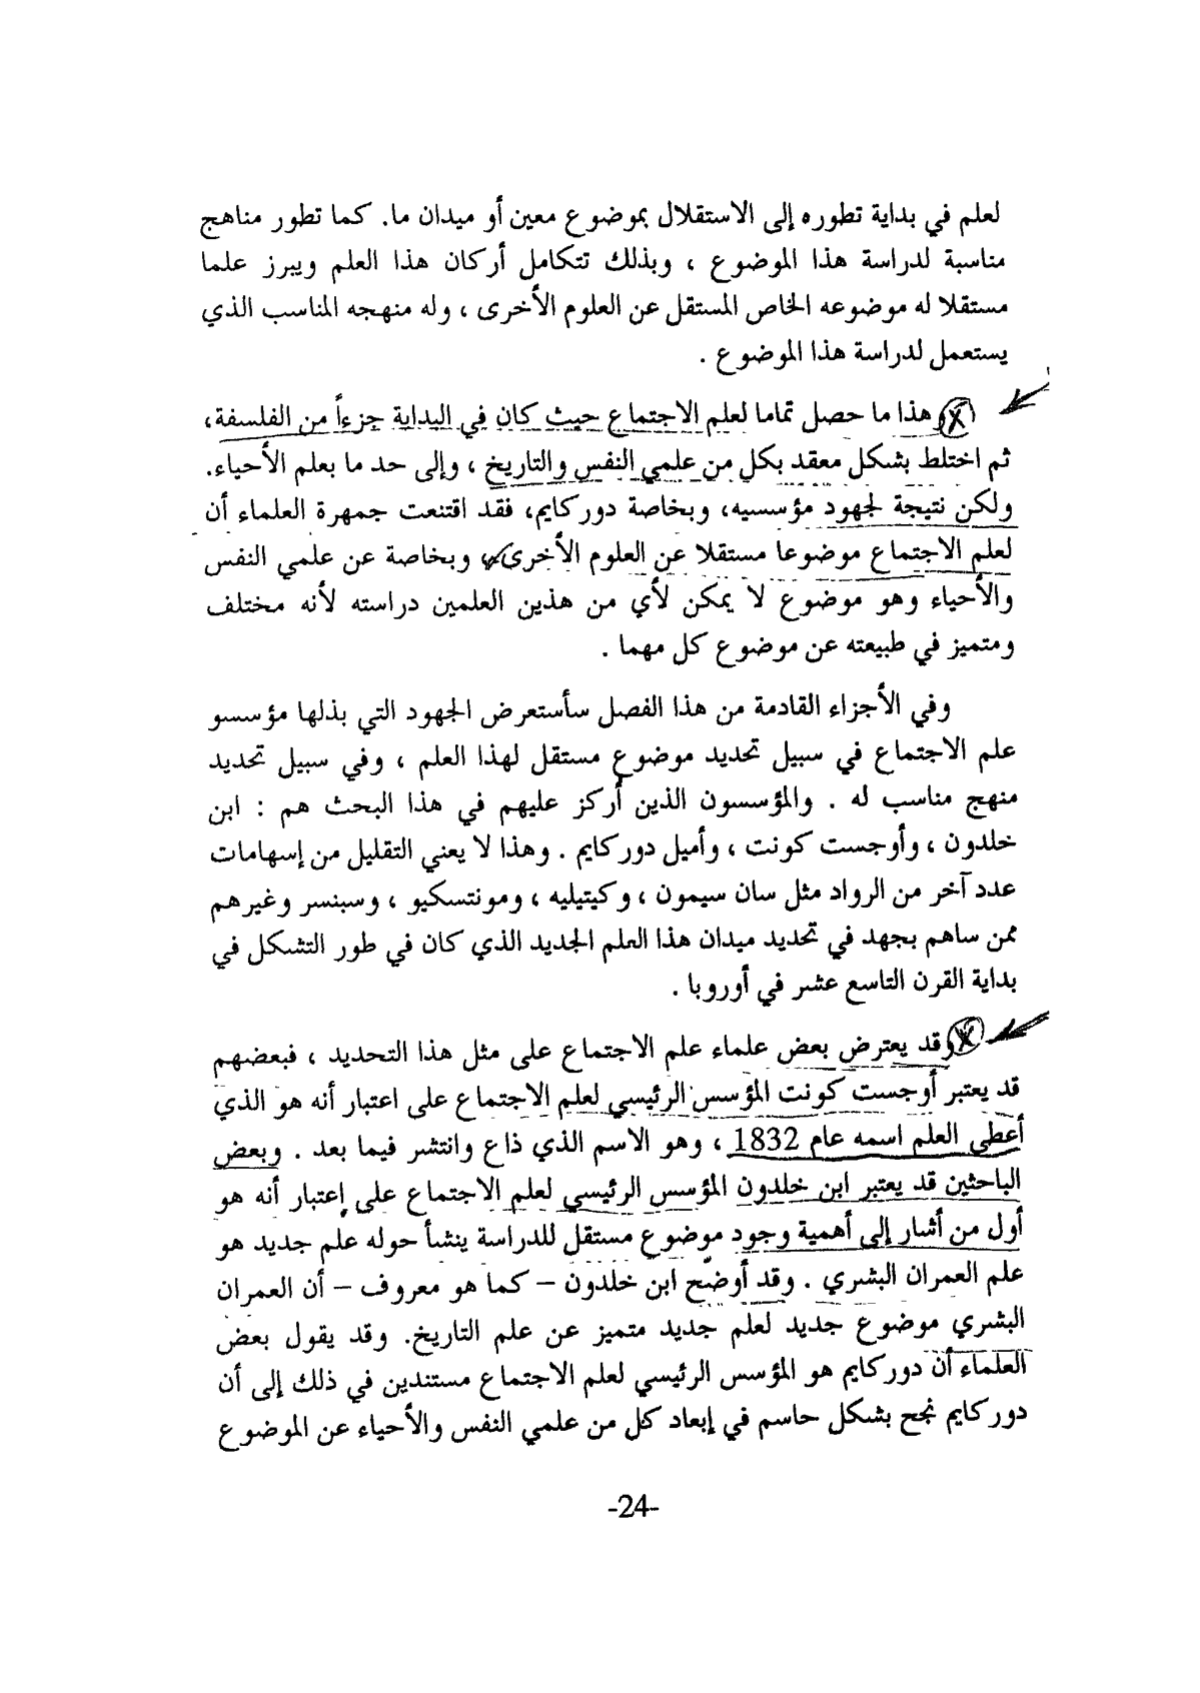 لعلم في بداية تطوره إلى الاستقلال بموضوع معين أو ميدان ما. كما تطور مناهج
مناسبة لدراسة هذا الموضوع ، وبذلك تتكامل أركان هذا العلم ويبرز علما
مستقلا له موضوعه الخاص المستقل عن العلوم الأخرى ، وله منهجه المناسب الذي
يستعمل لدراسة هذا الموضوع .
وهذا ما حصل تماما لعلم الاجتماع حيث كان في البداية جزءاً من الفلسفة،
ثم اختلط بشكل معقد بكل من علمي النفس والتاريخ ، وإلى حد ما بعلم الأحياء.
ولكن نتيجة لجهود مؤسسيه، وبخاصة دوركايم، فقد اقتنعت جمهرة العلماء أن
لعلم الاجتماع موضوعا مستقلا عن العلوم الأخرى، وبخاصة عن علمي النفس
والأحياء وهو موضوع لا يمكن لأي من هذين العلمين دراسته لأنه مختلف
ومتميز في طبيعته عن موضوع كل مهما .
وفي الأجزاء القادمة من هذا الفصل سأستعرض الجهود التي بذلها مؤسسو
علم الاجتماع في سبيل تحديد موضوع مستقل لهذا العلم ، وفي سبيل تحديد
منهج مناسب له . والمؤسسون الذين أركز عليهم في هذا البحث هم : ابن
خلدون ، وأوجست كونت ، وأميل دوركايم . وهذا لا يعني التقليل من إسهامات
عدد آخر من الرواد مثل سان سيمون ، وكيتيليه ، ومونتسكيو ، وسبنسر وغيرهم
ممن ساهم بجهد في تحديد ميدان هذا العلم الجديد الذي كان في طور التشكل في
بداية القرن التاسع عشر في أوروبا .
وقد يعترض بعض علماء علم الاجتماع على مثل هذا التحديد ، فبعضهم
قد يعتبر أوجست كونت المؤسس الرئيسي لعلم الاجتماع على اعتبار أنه هو الذي
أعطى العلم اسمه عام 1832 ، وهو الاسم الذي ذاع وانتشر فيما بعد . وبعض
الباحثين قد يعتبر ابن خلدون المؤسس الرئيسي لعلم الاجتماع على إعتبار أنه هو
أول من أشار إلى أهمية وجود موضوع مستقل للدراسة ينشأ حوله علم جديد هو
علم العمران البشري . وقد أوضّح ابن خلدون – كما هو معروف – أن العمران
البشري موضوع جديد لعلم جديد متميز عن علم التاريخ. وقد يقول بعض
العلماء أن دوركايم هو المؤسس الرئيسي لعلم الاجتماع مستندين في ذلك إلى أن
دوركايم نجح بشكل حاسم في إبعاد كل من علمي النفس والأحياء عن الموضوع
-24-